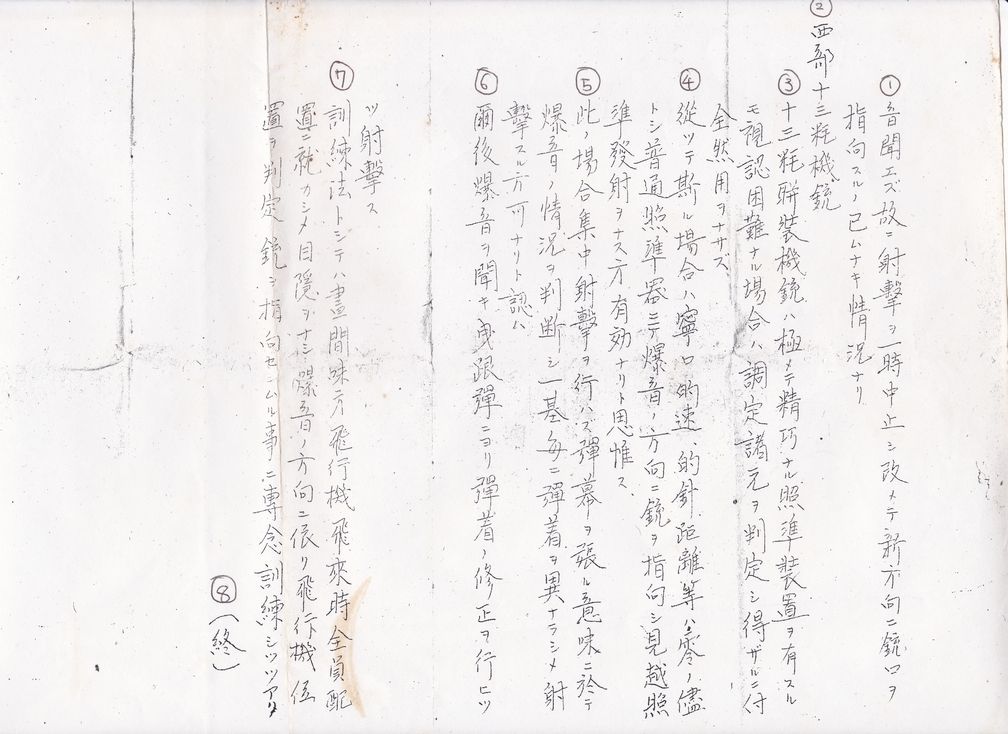 ① 音聞エズ故ニ射撃ヲ一時中止シ改メテ新方向ニ銃口ヲ
指向スルノ已ムナキ情況ナリ
② 西部十三粍機銃
③ 十三粍聯装機銃ハ極メテ精巧ナル照準装置ヲ有スル
モ視認困難ナル場合ハ調定諸元ヲ判定シ得ザルニ付
全然用ヲナサズ
④ 從ツテ斯ル場合ハ寧ロ的速、的針距離等ハ零ノ儘
トシ普通照準器ニテ爆音ノ方向ニ銃ヲ指向シ見越照
準發射ヲナス方有効ナリト思惟ス
⑤ 此ノ場合集中射撃ヲ行ハズ彈幕ヲ張ル意味ニ於テ
爆音ノ情況ヲ判断シ一基每ニ彈着ヲ異ナラシメ射
撃スル方可ナリト認ム
⑥ 爾後爆音ヲ聞キ曳跟彈ニヨリ彈着ノ修正ヲ行ヒツ
ツ射撃ス
⑦ 訓練法トシテハ晝間味方飛行機飛來時全員配
置ニ就カシメ目隠ヲナシ爆音ノ方向ニ依リ飛行機位
置ヲ判定銃ヲ指向セシムル事ニ專念訓練シツツアリ
⑧ (終)